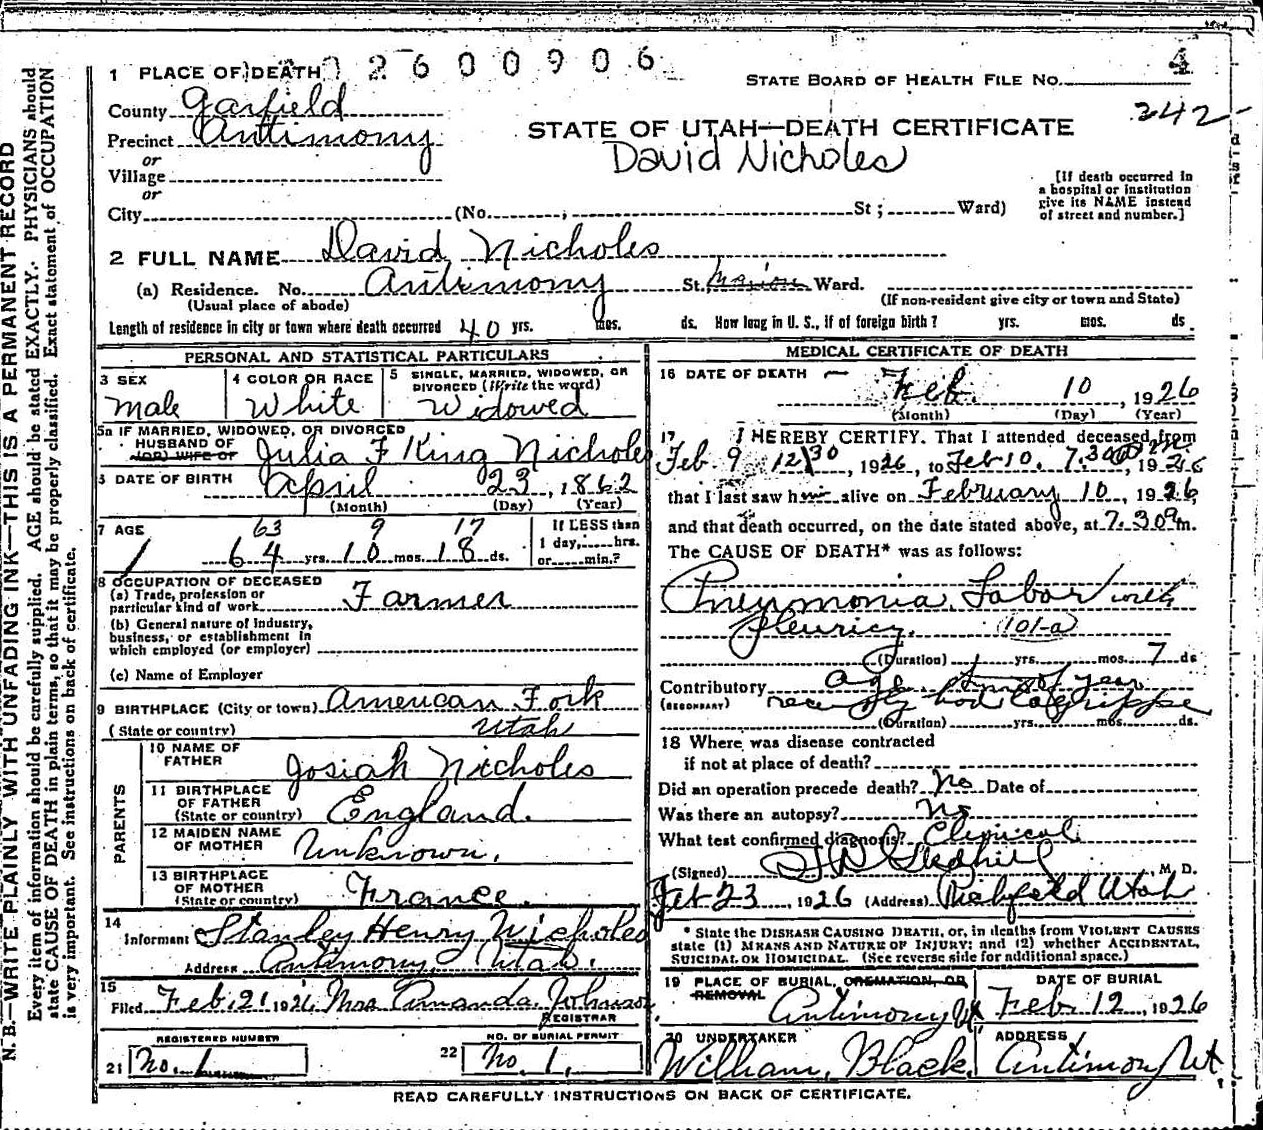 2600906
1 PLACE OF DEATH
STATE BOARD OF HEALTH FILE NO. 4
County Garfield
242-
Precinct Antimony
STATE OF UTAH—DEATH CERTIFICATE
David Nicholes
or
Village
or
[If death occurred in
a hospital or institution
give its NAME instead
of street and number.]
City (No. ; St ; Ward)
2 FULL NAME David Nicholes
(a) Residence. No. Antimony St. Marion Ward.
(Usual place of abode)
(If non-resident give city or town and State)
Length of residence in city or town where death occurred 40 yrs. mos. ds. How long in U. S., if of foreign birth? yrs. mos. ds.
PERSONAL AND STATISTICAL PARTICULARS
3 SEX
Male
4 COLOR OR RACE
White
5 SINGLE, MARRIED, WIDOWED, OR
DIVORCED (Write the word)
Widowed
5a IF MARRIED, WIDOWED, OR DIVORCED
HUSBAND OF
(OR) WIFE OF Julia F King Nicholes
DATE OF BIRTH April 23, 1862
(Month) (Day) (Year)
7 AGE
63 9 17
64 yrs. 10 mos. 18 ds.
If LESS than
1 day, hrs.
or min.?
8 OCCUPATION OF DECEASED
(a) Trade, profession or
particular kind of work Farmer
(b) General nature of Industry,
business, or establishment in
which employed (or employer)
(c) Name of Employer
9 BIRTHPLACE (City or town) American Fork
(State or country) Utah
PARENTS
10 NAME OF
FATHER Josiah Nicholes
11 BIRTHPLACE
OF FATHER
(State or country) England.
12 MAIDEN NAME
OF MOTHER Unknown.
13 BIRTHPLACE
OF MOTHER
(State or country) France.
14
Informant Stanley Henry Nicholes
Address Antimony Utah.
15
Filed Feb. 21 1926 Mrs Amanda Johnson
REGISTRAR
REGISTERED NUMBER
21 No. 1
NO. OF BURIAL PERMIT
22 No. 1.
MEDICAL CERTIFICATE OF DEATH
16 DATE OF DEATH Feb. 10, 1926
(Month) (Day) (Year)
17 I HEREBY CERTIFY. That I attended deceased from
Feb. 9 12/30, 1926, to Feb 10. 7.30, 1926
that I last saw him alive on February 10, 1926,
and that death occurred, on the date stated above, at 7.30 m.
The CAUSE OF DEATH* was as follows:
Pneumonia, Lobar with
pleuricy. 101-a
(Duration) yrs. mos. 7 ds
Contributory age, time of year
(SECONDARY) recently had Lagrippe
(Duration) yrs. mos. ds.
18 Where was disease contracted
if not at place of death?
Did an operation precede death? No Date of
Was there an autopsy? No
What test confirmed diagnosis? Clinical
(Signed) M. D.
Feb 23, 1926 (Address) Richfield Utah
* State the DISEASE CAUSING DEATH, or, in deaths from VIOLENT CAUSES
state (1) MEANS AND NATURE OF INJURY; and (2) whether ACCIDENTAL,
SUICIDAL OR HOMICIDAL. (See reverse side for additional space.)
19 PLACE OF BURIAL, CREMATION, OR
REMOVAL
Antimony Ut
DATE OF BURIAL
Feb 12, 1926
20 UNDERTAKER
William Black.
ADDRESS
Antimony Ut.
READ CAREFULLY INSTRUCTIONS ON BACK OF CERTIFICATE.
N. B.—WRITE PLAINLY WITH UNFADING INK—THIS IS A PERMANENT RECORD
Every item of information should be carefully supplied. AGE should be stated EXACTLY. PHYSICIANS should
state CAUSE OF DEATH in plain terms, so that it may be properly classified. Exact statement of OCCUPATION
is very important. See instructions on back of certificate.